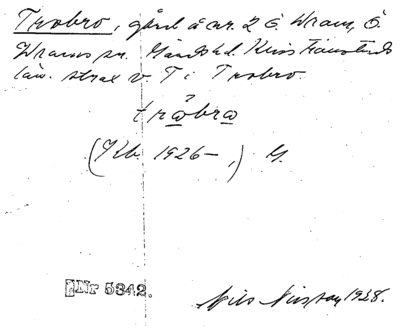 Trobro, gård å nr. 2 Ö. Wram, Ö
Wrams sn. Gärds hd. Kristianstads
län. strax v. T i Trobro.
tråbro
(Kb. 1926–,) G.
Nr 5342.
Nils 1928.